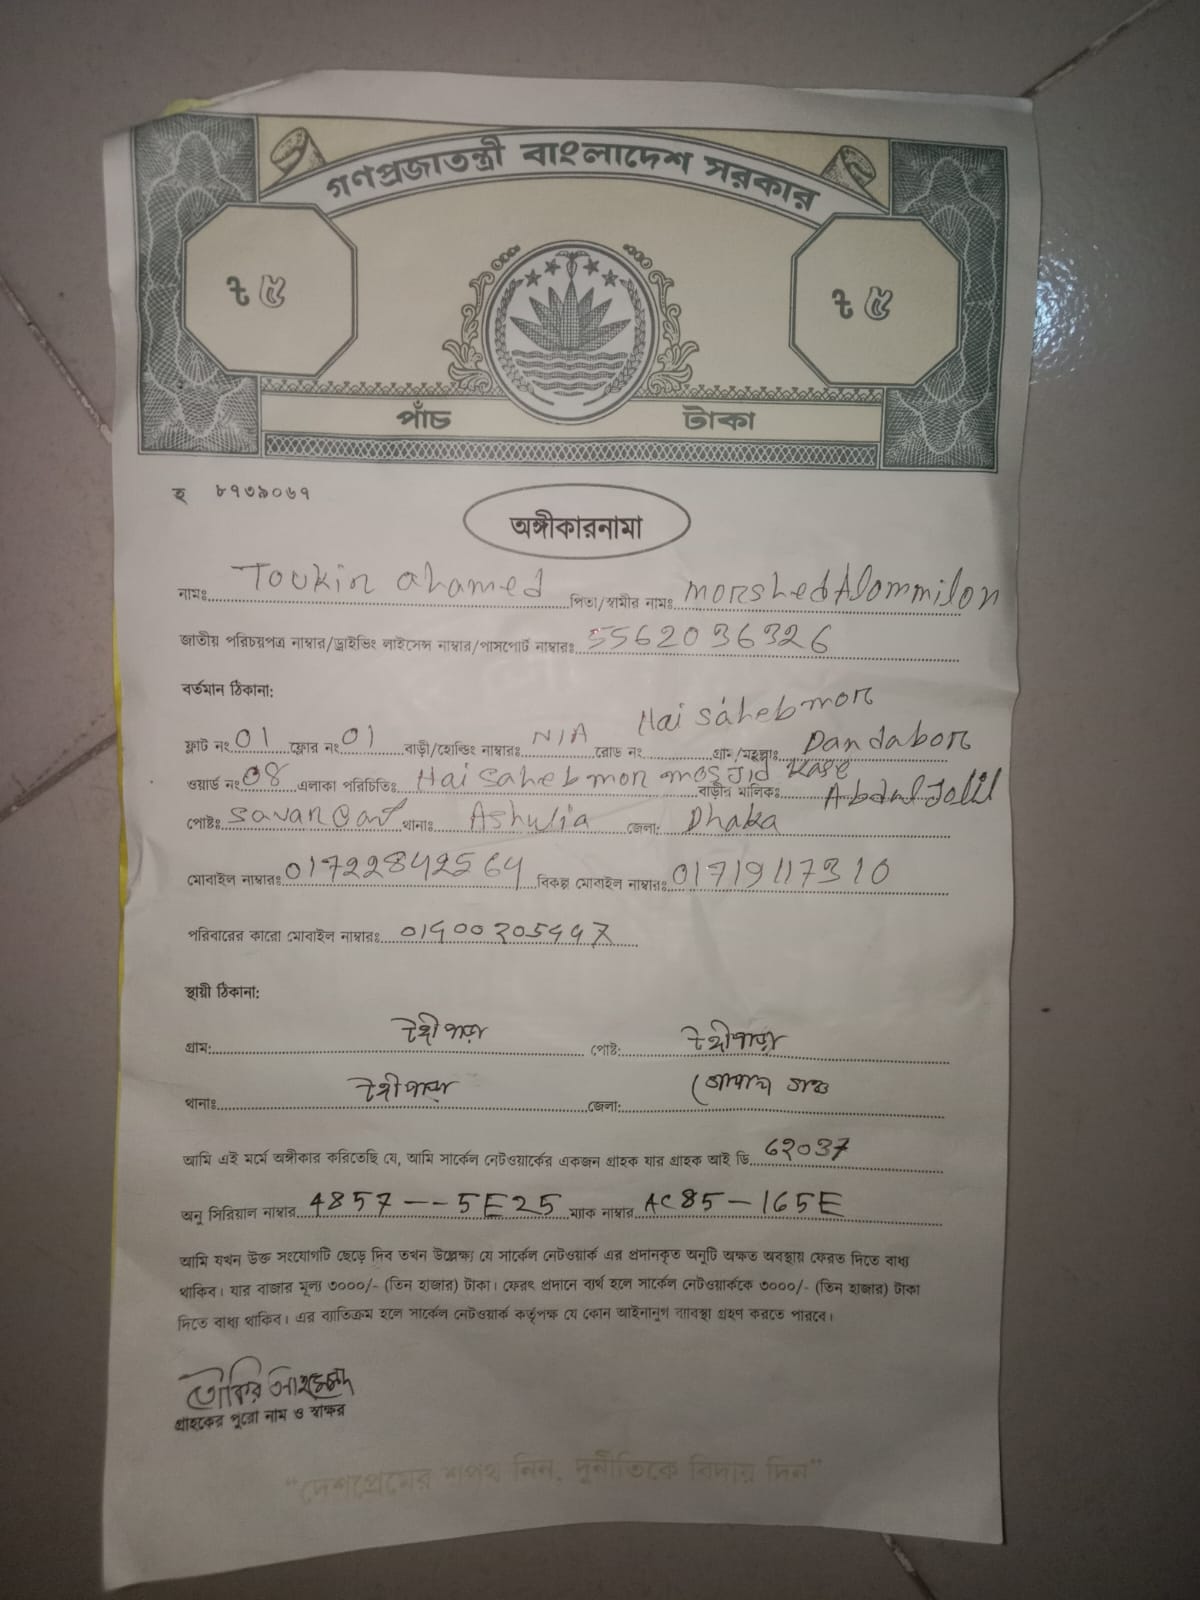 গণপ্রজাতন্ত্রী বাংলাদেশ সরকার
ট ৫ ট ৫
পাঁচ টাকা
হ ৮৭৩৯০৬৭
অঙ্গীকারনামা
নামঃ Toukir ahamed পিতা/স্বামীর নামঃ morshedAlommilon
জাতীয় পরিচয়পত্র নাম্বার/ড্রাইভিং লাইসেন্স নাম্বার/পাসপোর্ট নাম্বারঃ 5562036326
বর্তমান ঠিকানা:
ফ্লাট নং 01 ফ্লোর নং 01 বাড়ী/হোল্ডিং নাম্বারঃ N/A রোড নং Hai saheb mor গ্রাম/মহল্লাঃ Dandabor
ওয়ার্ড নং 08 এলাকা পরিচিতিঃ Hai saheb mor mosjid বাড়ীর মালিকঃ Abdul Jolil
পোষ্টঃ savar Cant থানাঃ Ashulia জেলা: Dhaka
মোবাইল নাম্বারঃ 01722842564 বিকল্প মোবাইল নাম্বারঃ 01719117310
পরিবারের কারো মোবাইল নাম্বারঃ
স্থায়ী ঠিকানা:
গ্রাম: টঙ্গীপাড়া পোষ্ট: টঙ্গীপাড়া
থানাঃ টঙ্গীপাড়া জেলা: গোপালগঞ্জ
আমি এই মর্মে অঙ্গীকার করিতেছি যে, আমি সার্কেল নেটওয়ার্কের একজন গ্রাহক যার গ্রাহক আই ডি 62037
অনু সিরিয়াল নাম্বার 4857--5E25 ম্যাক নাম্বার AC85-165E
আমি যখন উক্ত সংযোগটি ছেড়ে দিব তখন উল্লেক্ষ্য যে সার্কেল নেটওয়ার্ক এর প্রদানকৃত অনুটি অক্ষত অবস্থায় ফেরত দিতে বাধ্য
থাকিব। যার বাজার মূল্য ৩০০০/- (তিন হাজার) টাকা। ফেরৎ প্রদানে ব্যর্থ হলে সার্কেল নেটওয়ার্ককে ৩০০০/- (তিন হাজার) টাকা
দিতে বাধ্য থাকিব। এর ব্যাতিক্রম হলে সার্কেল নেটওয়ার্ক কর্তৃপক্ষ যে কোন আইনানুগ ব্যাবস্থা গ্রহণ করতে পারবে।
তৌকির আহমেদ
গ্রাহকের পুরো নাম ও স্বাক্ষর
“দেশপ্রেমের শপথ নিন, দুর্নীতিকে বিদায় দিন”